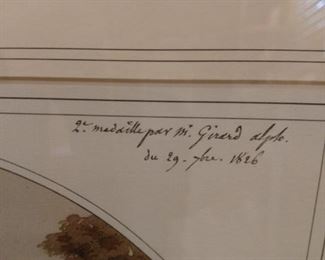 2e medaille par Mr. Girard alph.
du 29. 7bre. 1826